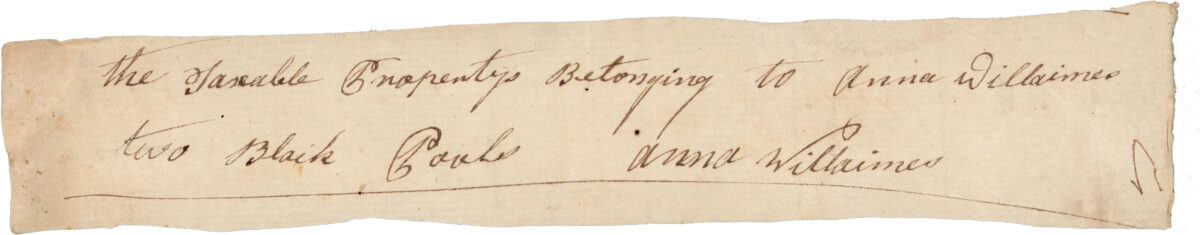 the Taxable Propertys Belonging to Anna Willaimes
two Black Pools Anna Willaimes